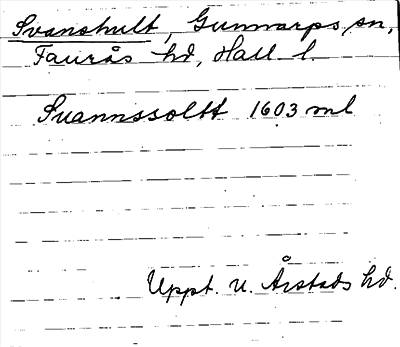 Svanshult, Gunnarps sn,
Faurås hd, Hall l.
Suannssoltt 1603 ml
Uppt. u. Årstads hd.